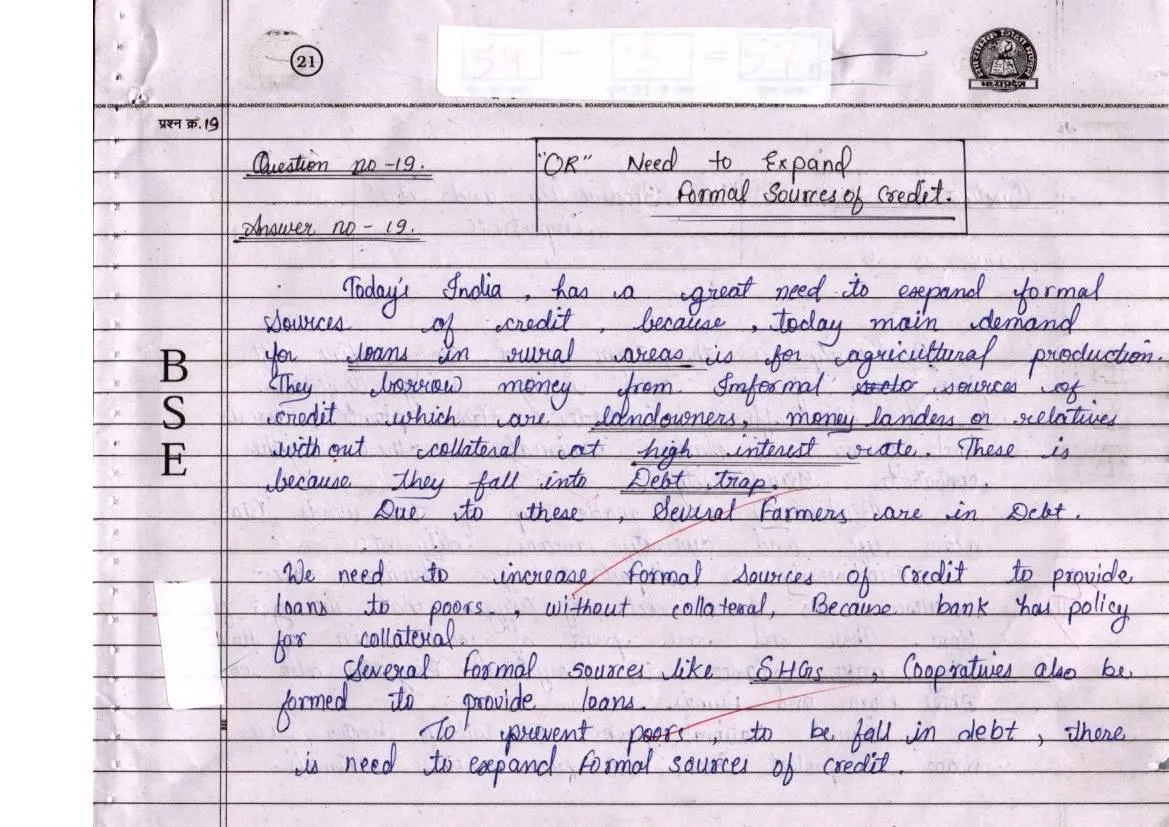 21
54 - 3 = 57
माध्यमिक शिक्षा मण्डल
मध्यप्रदेश
BOARDOFSECONDARYEDUCATION,MADHYAPRADESH,BHOPAL BOARDOFSECONDARYEDUCATION,MADHYAPRADESH,BHOPAL
प्रश्न क्र. 19
Question no -19.
"OR" Need to Expand
Formal Sources of Credit.
Answer no - 19.
Today's India , has a great need to expand formal
sources of credit , because , today main demand
for loans in rural areas is for agricultural production.
They borrow money from Imformal sources of
credit which are landowners, money landers or relatives
without collateral at high interest rate. These is
because they fall into Debt trap.
Due to these , Several Farmers are in Debt.
We need to increase formal sources of credit to provide
loans to poors , without collateral, Because bank has policy
for collateral
Several formal sources like SHGs , Coopratives also be
formed to provide loans.
To prevent poors , to be fall in debt , there
is need to expand formal sources of credit.
B
S
E